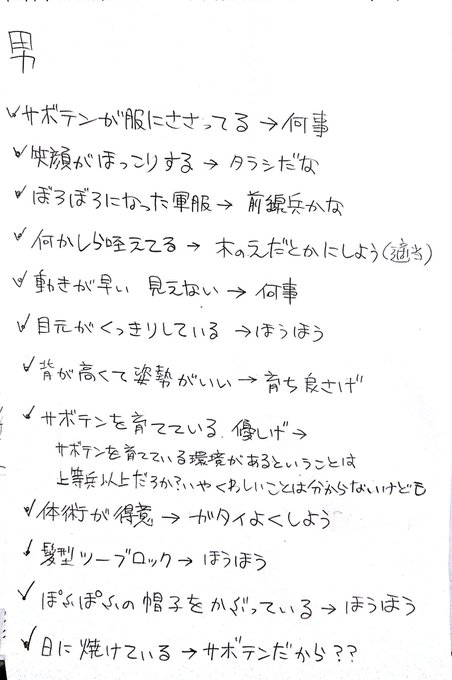 男
✓サボテンが服にささってる→何事
✓笑顔がほっこりする→タラシだな
✓ぼろぼろになった軍服→前線兵かな
✓何かしら咥えてる→木のえだとかにしよう(適当)
✓動きが早い 見えない→何事
✓目元がくっきりしている→ほうほう
✓背が高くて姿勢がいい→育ち良さげ
✓サボテンを育てている.優しげ→
サボテンを育てている環境があるということは
上等兵以上だろか?いやくわしいことは分からないけども
✓体術が得意→ガタイよくしよう
✓髪型ツーブロック→ほうほう
✓ぽふぽふの帽子をかぶっている→ほうほう
✓日に焼けている→サボテンだから??